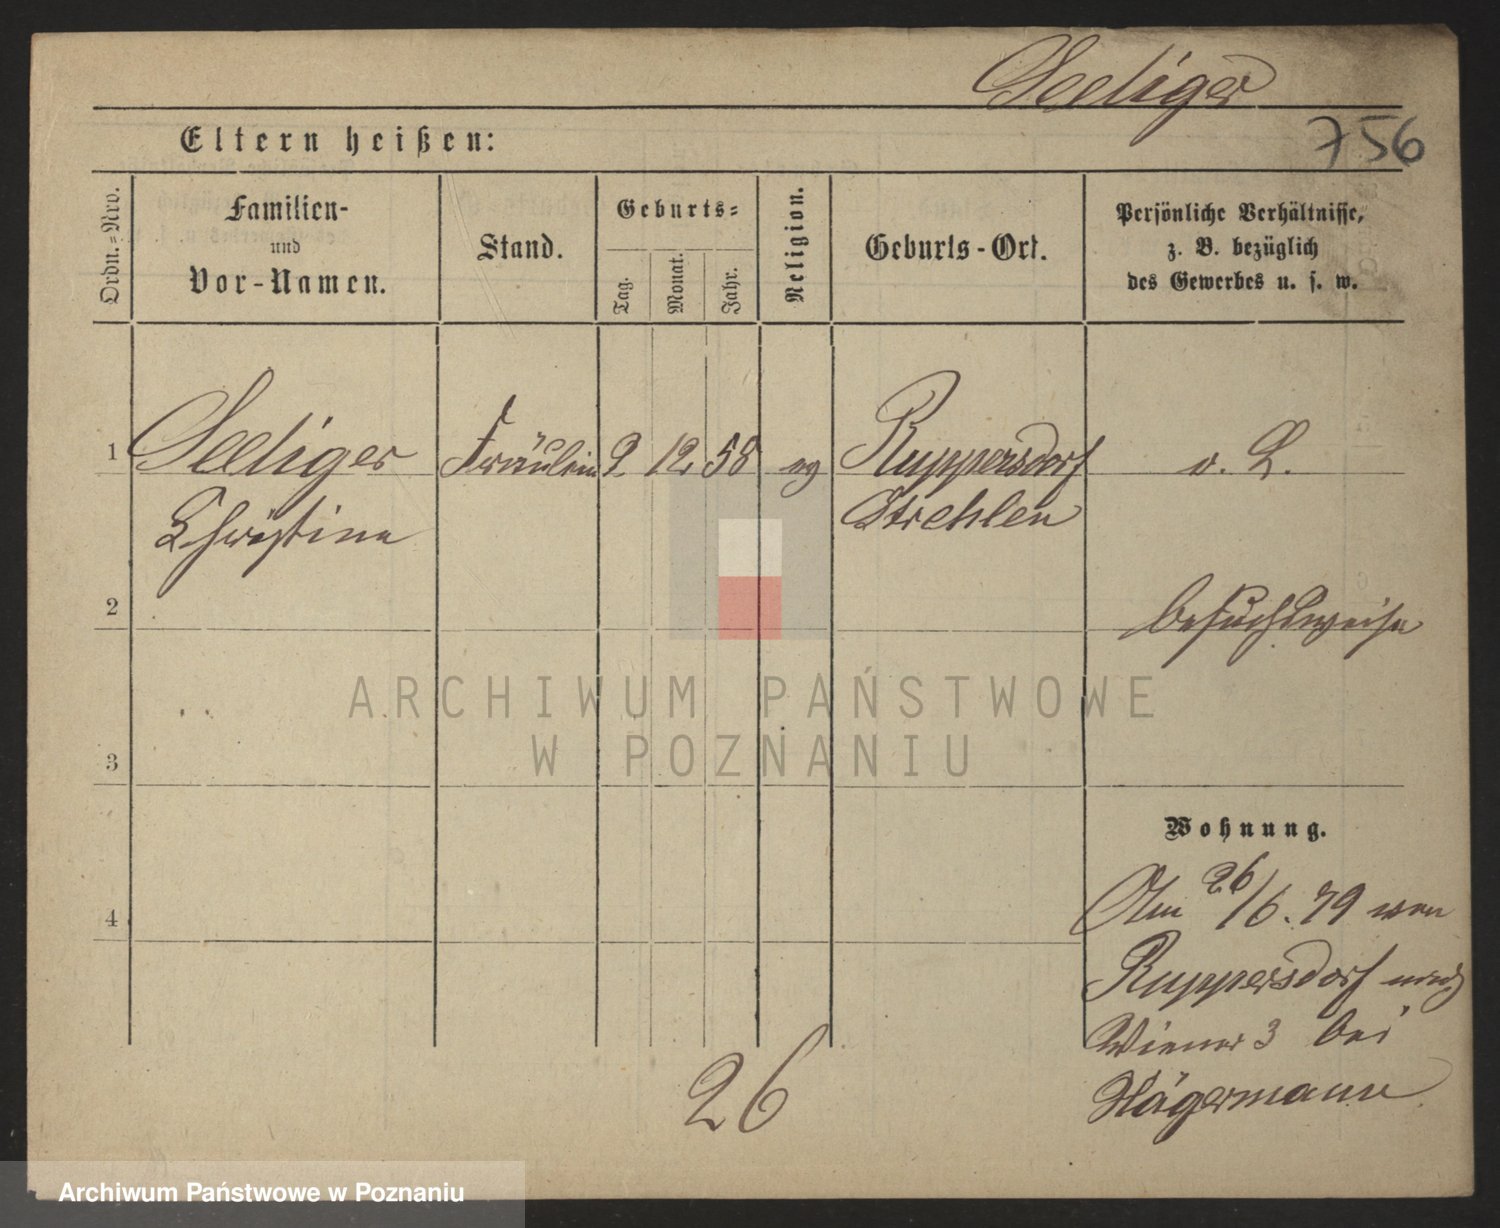 Seeliger
756
Eltern heißen:
Ordn.=Nro.
Familien-
und
Vor-Namen.
Stand.
Geburts=
Tag.
Monat.
Jahr.
Religion.
Geburts-Ort.
Persönliche Verhältnisse,
z. B. bezüglich
des Gewerbes u. s. w.
1 Seeliger Fräulein 9. 12. 58 ev Ruppersdorf o. L.
Christine Strehlen
2 besuchsweise
3
Wohnung.
4 Am 26/6. 79 von
Ruppersdorf nach
Wiener 3 bei
Hägermann
26
ARCHIWUM PAŃSTWOWE
W POZNANIU
Archiwum Państwowe w Poznaniu